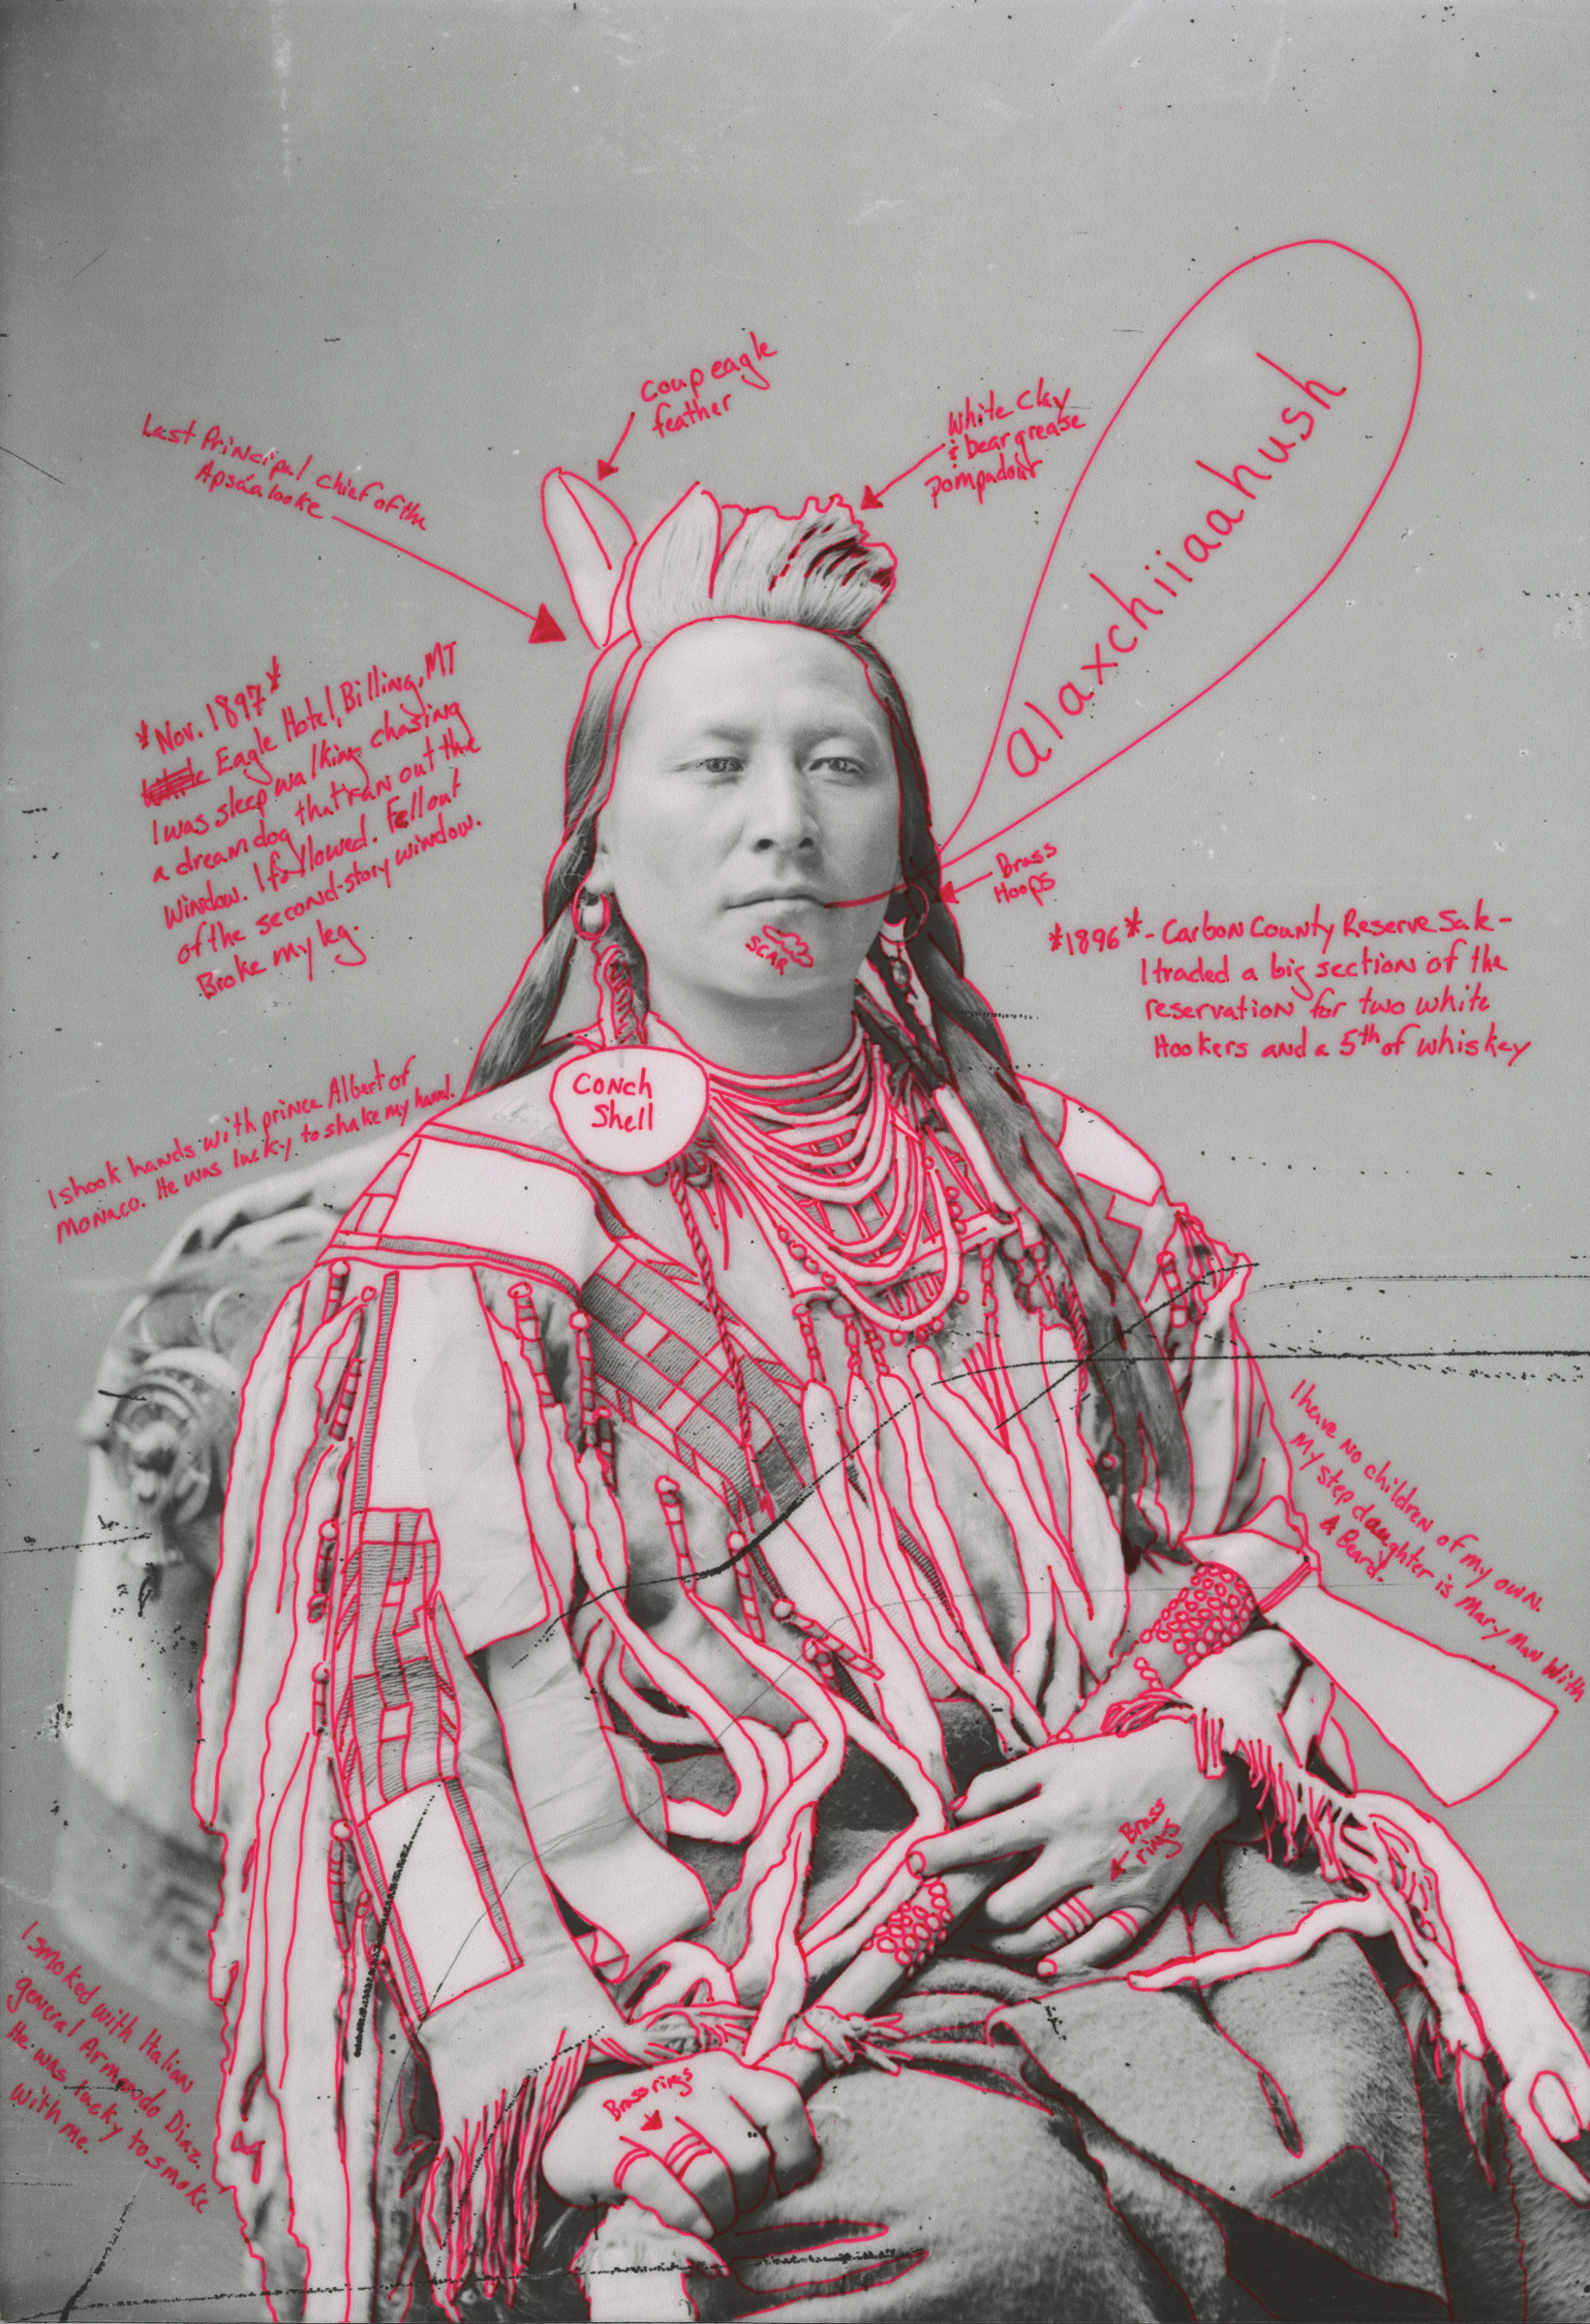 coup eagle
feather
White Clay
& bear grease
pompadour
Last Principal chief of the
Apsáalooke
alaxchiiaahush
*Nov. 1897*
White Eagle Hotel, Billing, MT
I was sleep walking chasing
a dream dog that ran out the
window. I followed. Fell out
of the second-story window.
Broke my leg.
Brass
Hoops
SCAR
*1896* - Carbon County Reserve Sale -
I traded a big section of the
reservation for two white
Hookers and a 5th of whiskey
I shook hands with prince Albert of
Monaco. He was lucky to shake my hand.
Conch
Shell
I have no children of my own.
My step daughter is Mary Man With
A Beard.
Brass
rings
I smoked with Italian
general Armando Diaz.
He was lucky to smoke
with me.
Brass rings